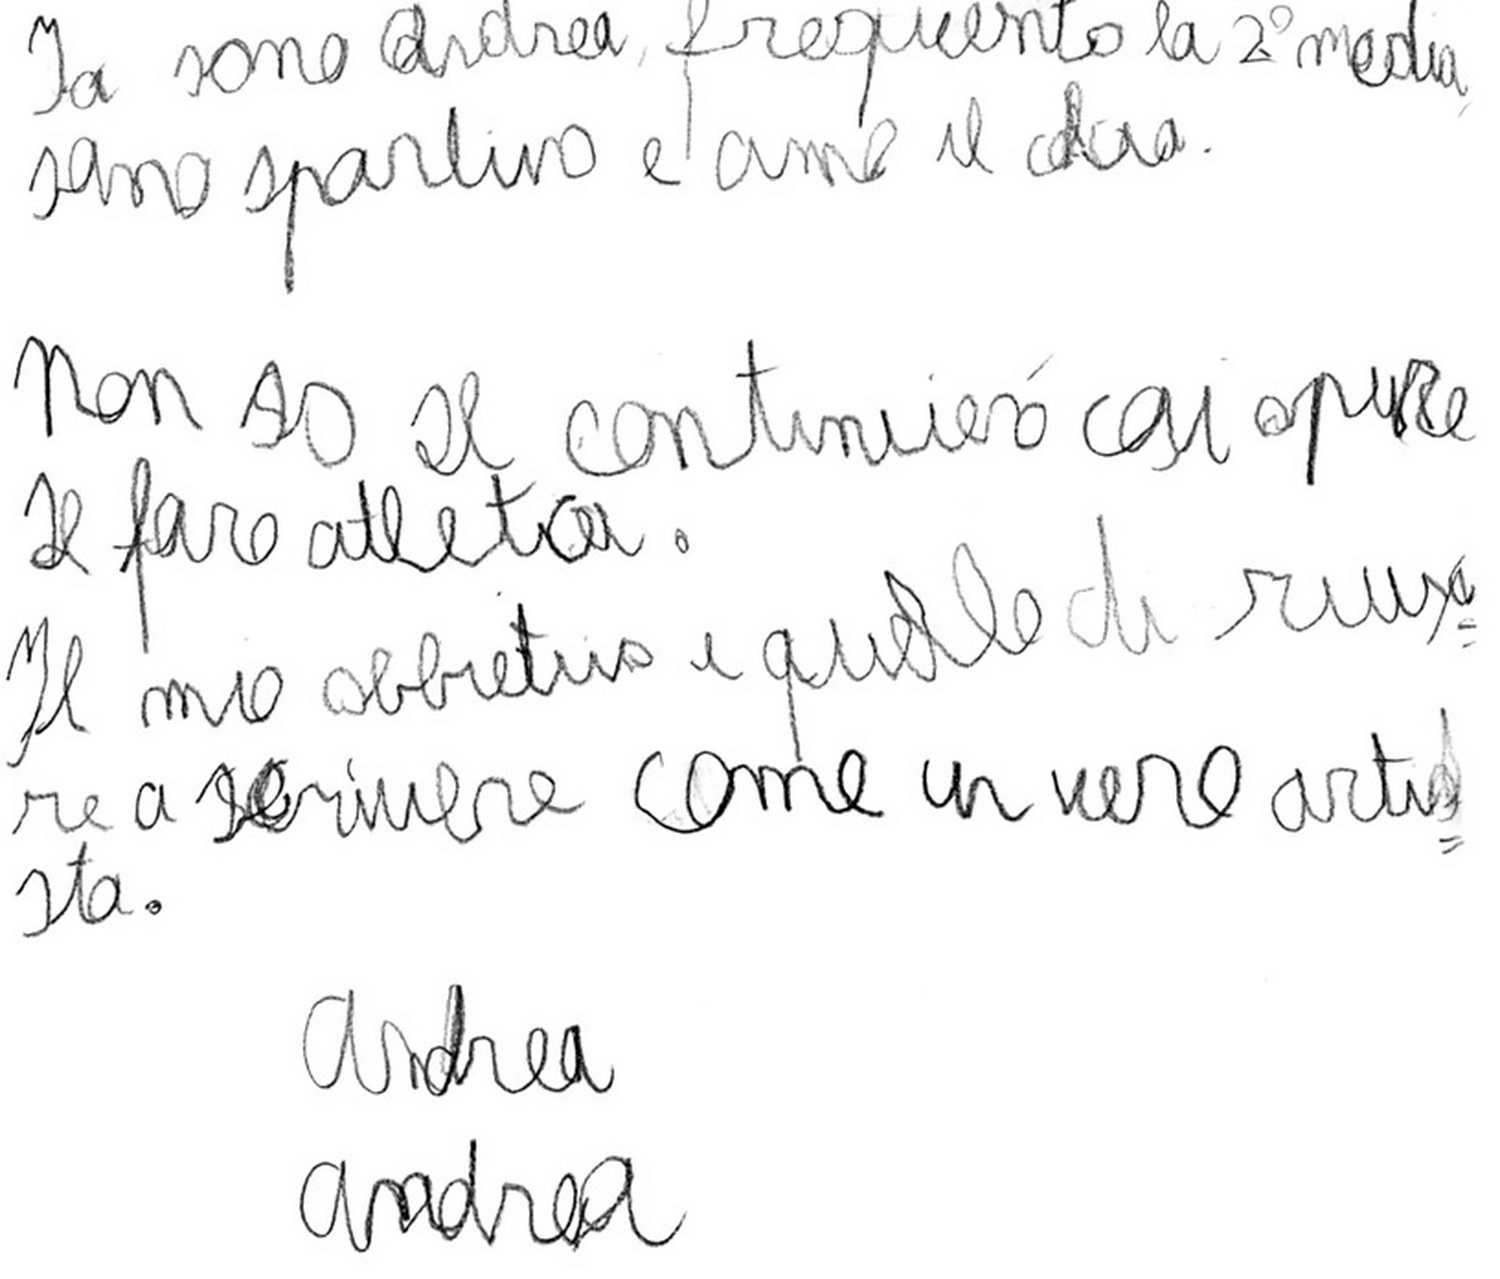 Io sono Andrea, frequento la 2° media,
sono sportivo e amo il
Non so se continuierò così opure
se farò atletica.
Il mio obbiettivo e quello di riusci=
re a scrivere come un vero arti=
sta.
Andrea
Andrea